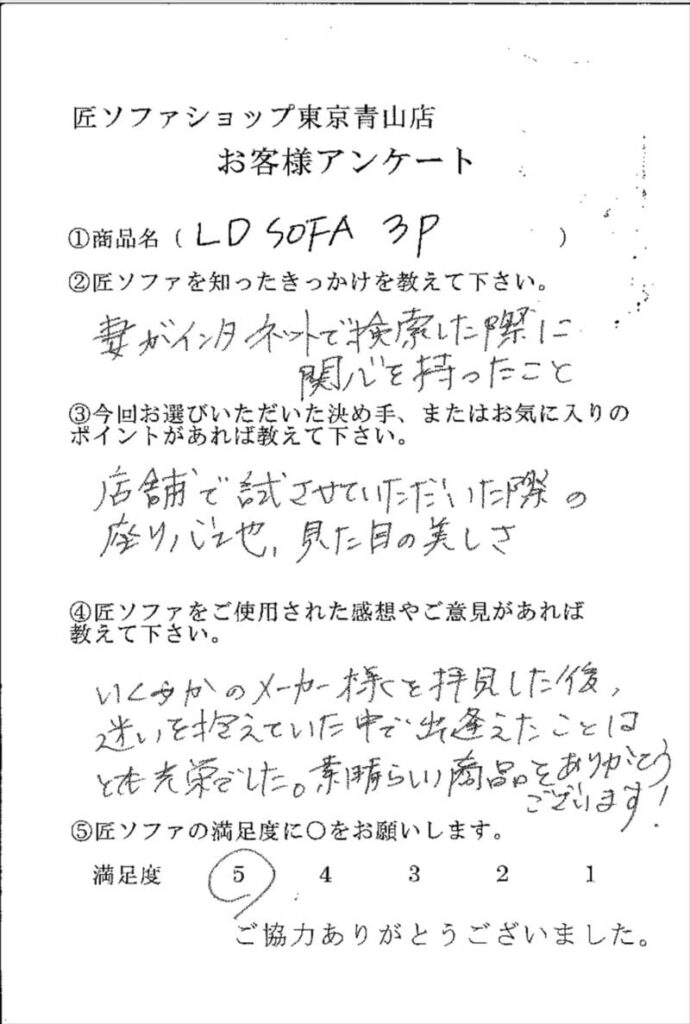 匠ソファショップ東京青山店
お客様アンケート
①商品名（ LD SOFA 3P ）
②匠ソファを知ったきっかけを教えて下さい。
妻がインタネットで検索した際に
関心を持ったこと
③今回お選びいただいた決め手、またはお気に入りの
ポイントがあれば教えて下さい。
店舗で試させていただいた際の
座り心地、見た目の美しさ
④匠ソファをご使用された感想やご意見があれば
教えて下さい。
いくつかのメーカー様を拝見した後、
迷いを抱えていた中で出逢えたことは
とても光栄でした。素晴らしい商品をありがとう
ございます！
⑤匠ソファの満足度に〇をお願いします。
満足度 5 4 3 2 1
ご協力ありがとうございました。